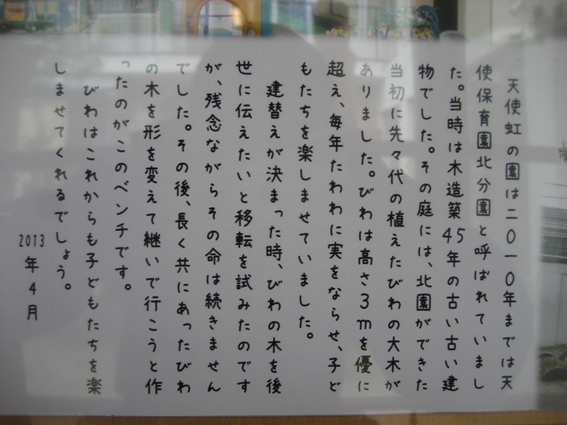 天使虹の園は二〇一〇年までは天
使保育園北分園と呼ばれていまし
た。当時は木造築45年の古い古い建
物でした。その庭には、北園ができた
当初に先々代の植えたびわの大木が
ありました。びわは高さ3mを優に
超え、毎年たわわに実をならせ、子ど
もたちを楽しませていました。
建替えが決まった時、びわの木を後
世に伝えたいと移転を試みたのです
が、残念ながらその命は続きません
でした。その後、長く共にあったびわ
の木を形を変えて継いで行こうと作
ったのがこのベンチです。
びわはこれからも子どもたちを楽
しませてくれるでしょう。
2013年4月